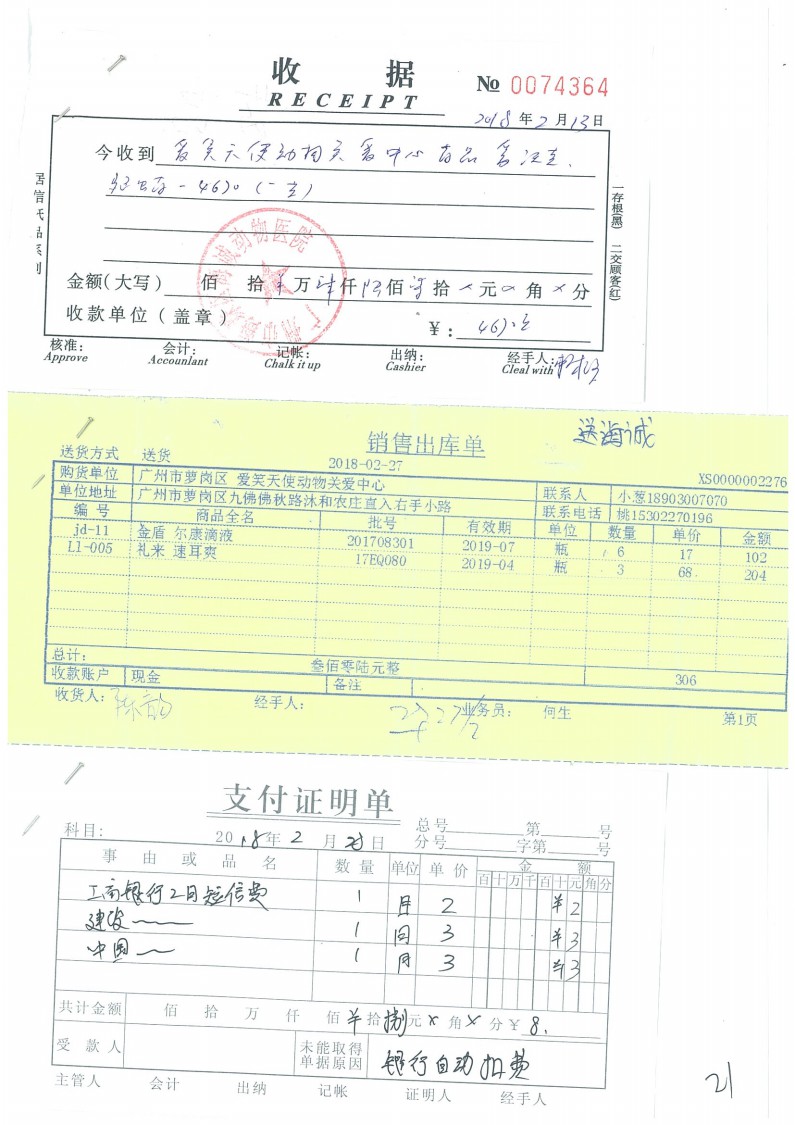 收 据
RECEIPT
№ 0074364
2018 年 2 月 13 日
今收到 爱笑天使动物关爱中心
4620
金额(大写) 佰 拾 万 肆仟 陆佰 贰拾 元 角 分
收款单位(盖章)
¥: 4620
核准: 会计: 记帐: 出纳: 经手人:
Approve Accounlant Chalk it up Cashier Cleal with
一存根(黑) 二交顾客(红)
动物医院
销售出库单
送海诚
送货方式 送货
2018-02-27
XS0000002276
购货单位 广州市萝岗区 爱笑天使动物关爱中心 联系人 小葱18903007070
单位地址 广州市萝岗区九佛佛秋路沐和农庄直入右手小路 联系电话 姚15302270196
编号 商品全名 批号 有效期 单位 数量 单价 金额
jd-11 金盾 尔康滴液 201708301 2019-07 瓶 6 17 102
L1-005 礼来 速耳爽 17EQ080 2019-04 瓶 3 68 204
总计: 叁佰零陆元整 306
收款账户 现金 备注
收货人: 经手人: 业务员: 何生 第1页
支付证明单
科目: 2018年 2 月 日
总号 第 号
分号 字第 号
事由或品名 数量 单位 单价 金额
百十万千百十元角分
工商银行2月短信费 1 月 2 ¥2
建设 1 月 3 ¥3
中国 1 月 3 ¥3
共计金额 佰 拾 万 仟 佰 拾 捌元 × 角 × 分 ¥ 8.
受款人 未能取得单据原因 银行自动扣费
主管人 会计 出纳 记帐 证明人 经手人
21